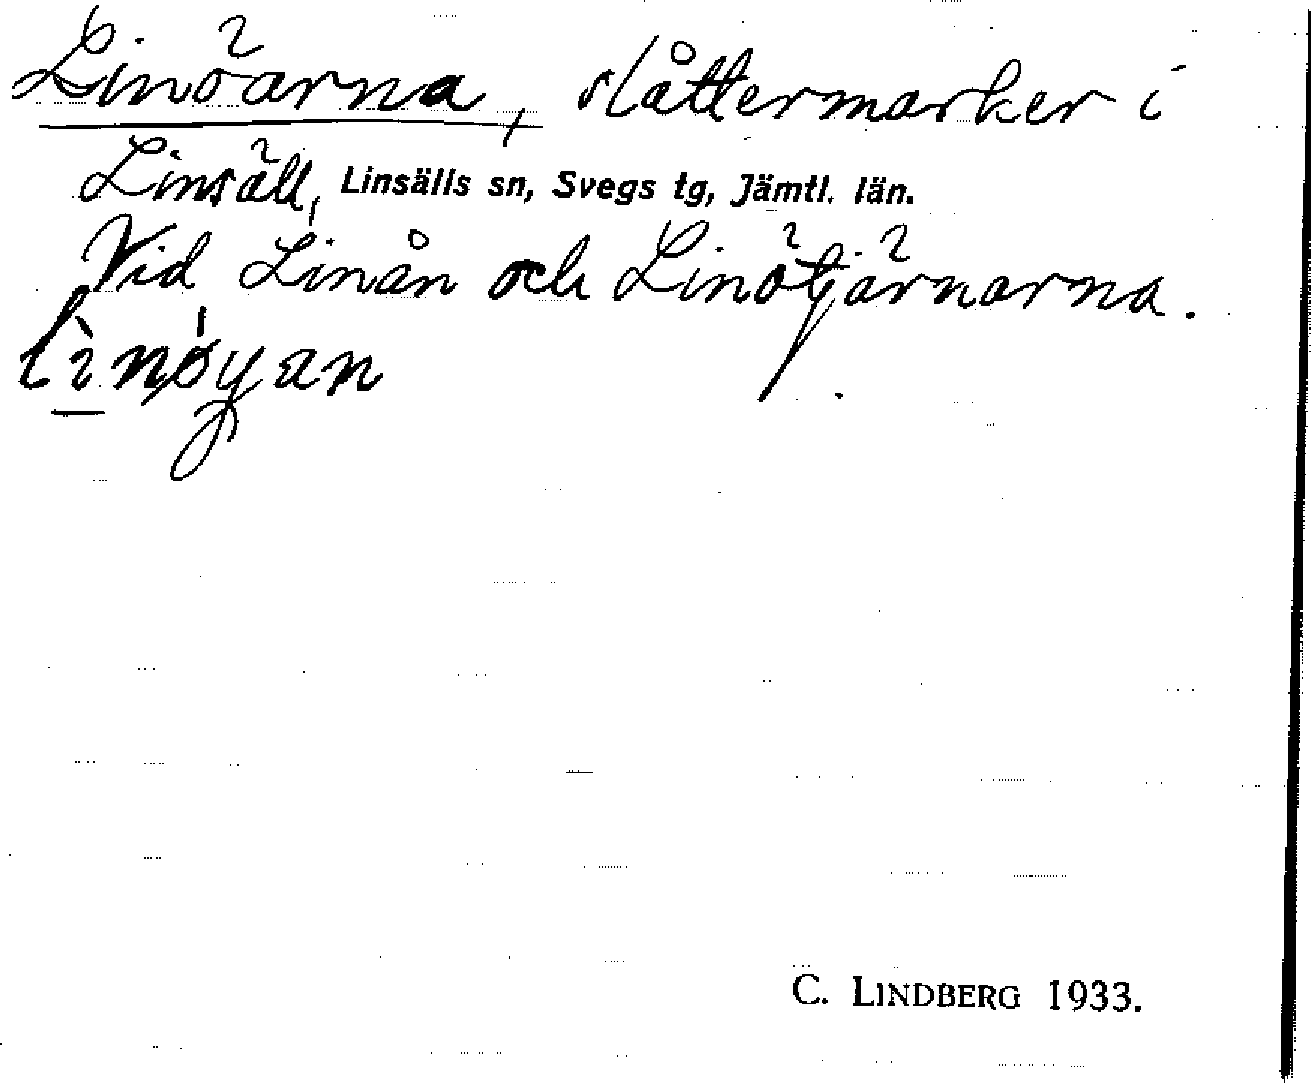 Linöarna, slåttermarker i
Linsäll, Linsälls sn, Svegs tg, Jämtl. län.
Vid Linån och Linötjärnarna.
lìnǿyan
C. LINDBERG 1933.